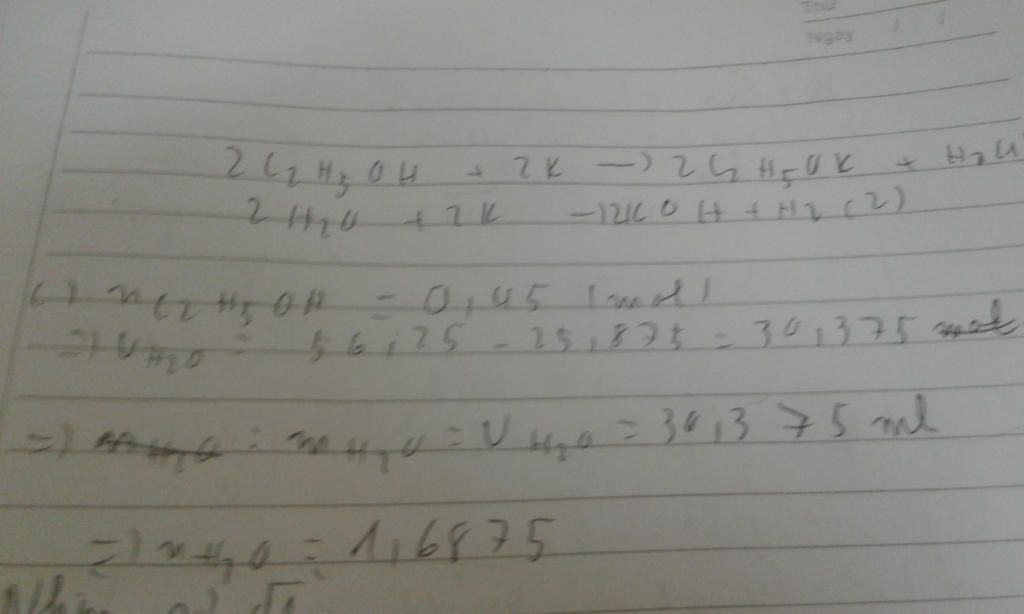 Thứ
Ngày / /
2 C2H5OH + 2K → 2C2H5OK + H2
2 H2O + 2K → 2KOH + H2 (2)
c) nC2H5OH = 0,45 (mol)
=> VH2O = 56,25 - 25,875 = 30,375
=> mH2O = VH2O = 30,375 ml
=> nH2O = 1,6875